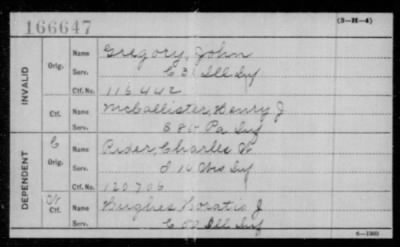 166647
(3-H-4)
INVALID
Orig.
Name Gregory, John
Serv. C 31 Ill Inf
Ctf. No. 116442
Ctf.
Name McCallister, Henry J
Serv. Pa Inf
DEPENDENT
C
Orig.
Name Rider Charles W
Serv. I 16 Wis Inf
Ctf. No. 120706
Ctf.
Name Hughes Horatio J
C Ill Inf